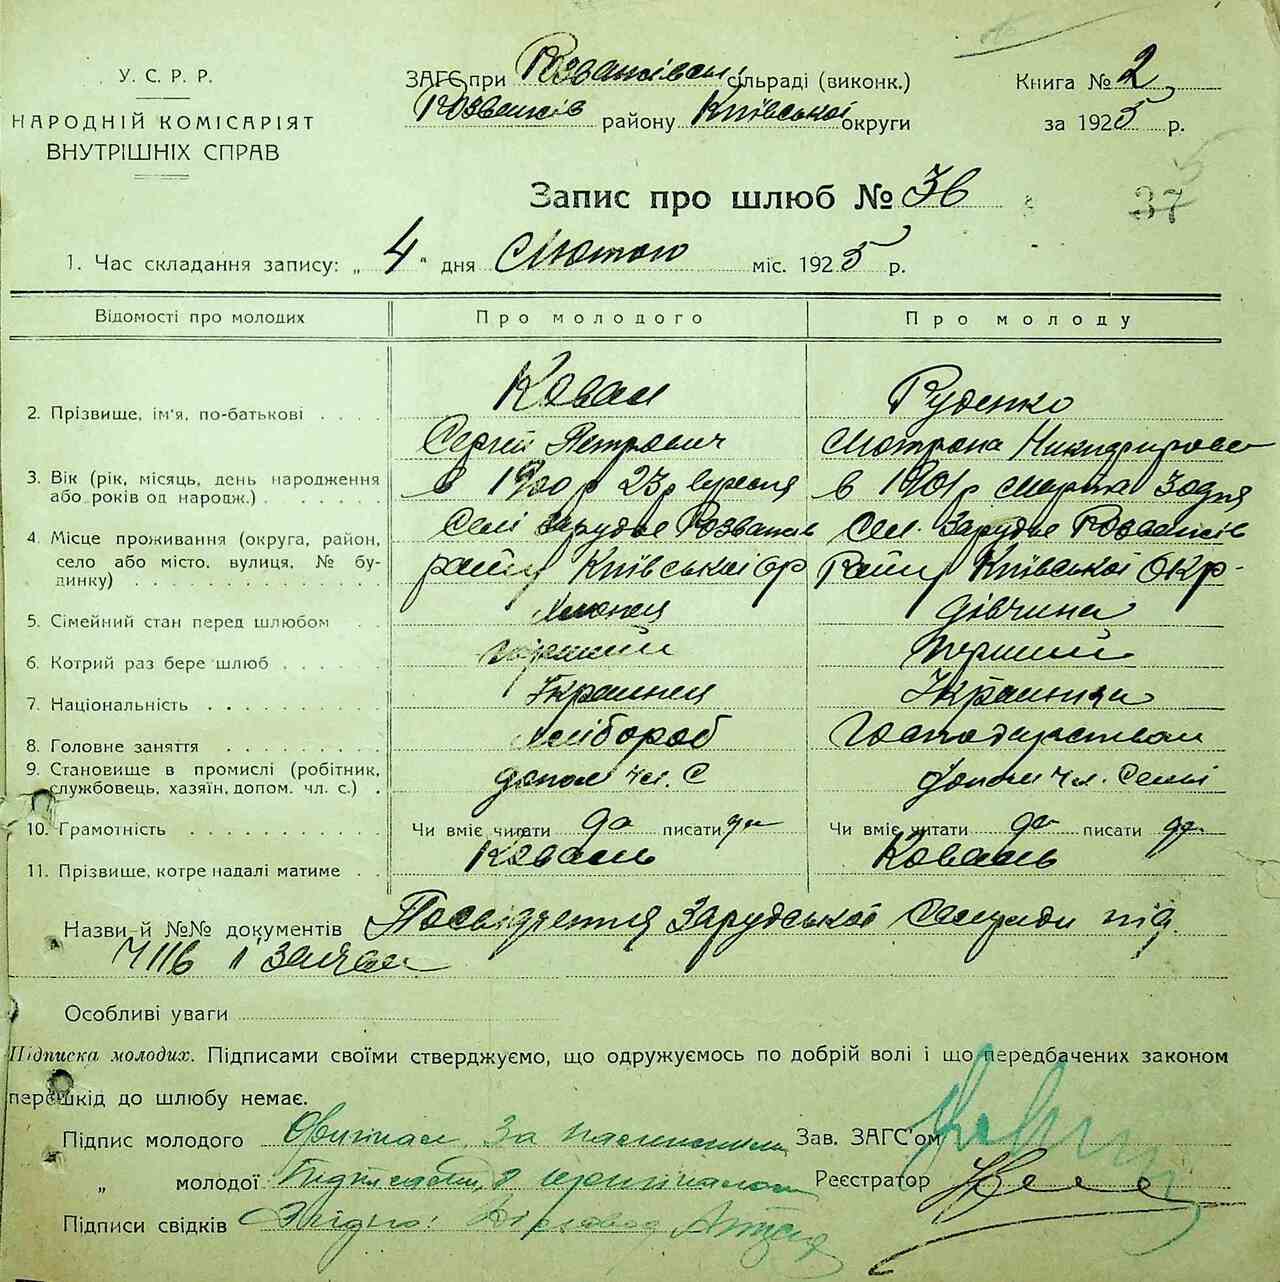 У. С. Р. Р.
НАРОДНІЙ КОМІСАРІЯТ
ВНУТРІШНІХ СПРАВ
ЗАГС при Розважівськ сільраді (виконк.)
Розважів району Київської округи
Книга № 2
за 1925 р.
Запис про шлюб № 36
37
1. Час складання запису: „ 4 " дня Лютого міс. 1925 р.
Відомості про молодих Про молодого Про молоду
2. Прізвище, ім'я, по-батькові Коваль Руденко
Сергій Петрович Мотрона Никифорова
3. Вік (рік, місяць, день народження або років од народж.) в 1900 р 23 вересня в 1901 р Марта 30 дня
4. Місце проживання (округа, район, село або місто, вулиця, № будинку) Селі Зарудье Розважів Сел. Зарудье Розважів
району Київської ор Району Київської Окр-
5. Сімейний стан перед шлюбом дівчина
6. Котрий раз бере шлюб перший перший
7. Національність Украинец Украинка
8. Головне заняття хлібороб Господарством
9. Становище в промислі (робітник, службовець, хазяїн, допом. чл. с.) допом чл. С допом чл. Семї
10. Грамотність Чи вміє читати да писати да Чи вміє читати да писати да
11. Прізвище, котре надалі матиме Коваль Коваль
Назви й №№ документів Посвідчення Зарудської Сільради під
Ч 116 і
Особливі уваги
Підписка молодих. Підписами своїми стверджуємо, що одружуємось по добрій волі і що передбачених законом
перешкід до шлюбу немає.
Підпис молодого Оригінал за належними Зав. ЗАГС'ом
„ молодої Підписами, з оригіналом Реєстратор
Підписи свідків Згідно: Діловод